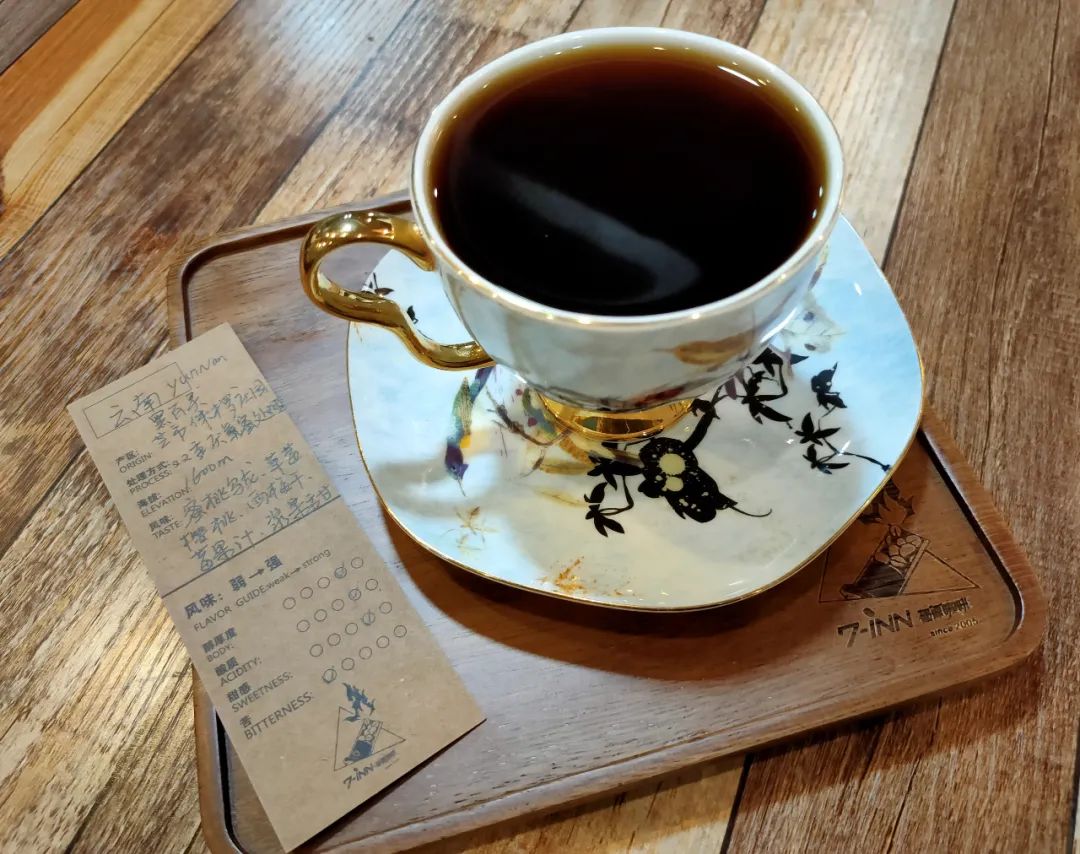 云南 yunnan
产区:
ORIGIN:
处理方式:
PROCESS:
海拔:
ELEVATION: 1600m
风味: 蜜桃乌龙.草莓
TASTE: 樱桃.西梅干.
苹果汁.浆果甜
风味: 弱→强
FLAVOR GUIDE:weak→strong
醇厚度
BODY:
酸质
ACIDITY:
甜感
SWEETNESS:
苦
BITTERNESS:
7-iNN
7-iNN
since 2006